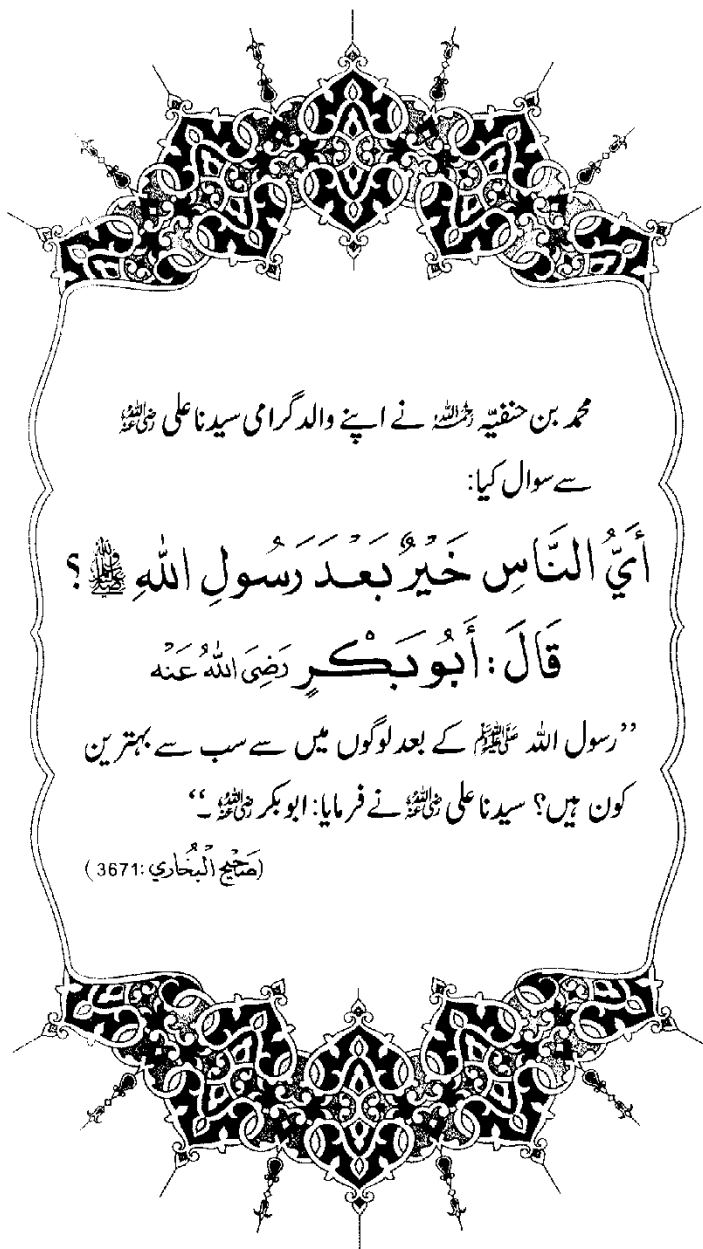 محمد بن حنفیّہ رحمہ اللہ نے اپنے والد گرامی سیدنا علی رضی اللہ عنہ
سے سوال کیا:
أَيُّ النَّاسِ خَيْرٌ بَعْدَ رَسُولِ اللهِ ﷺ؟
قَالَ: أَبُو بَكْرٍ رَضِيَ اللهُ عَنْه
”رسول اللہ ﷺ کے بعد لوگوں میں سے سب سے بہترین
کون ہیں؟ سیدنا علی رضی اللہ عنہ نے فرمایا: ابوبکر رضی اللہ عنہ۔“
(صَحِيْح الْبُخَاري: 3671)